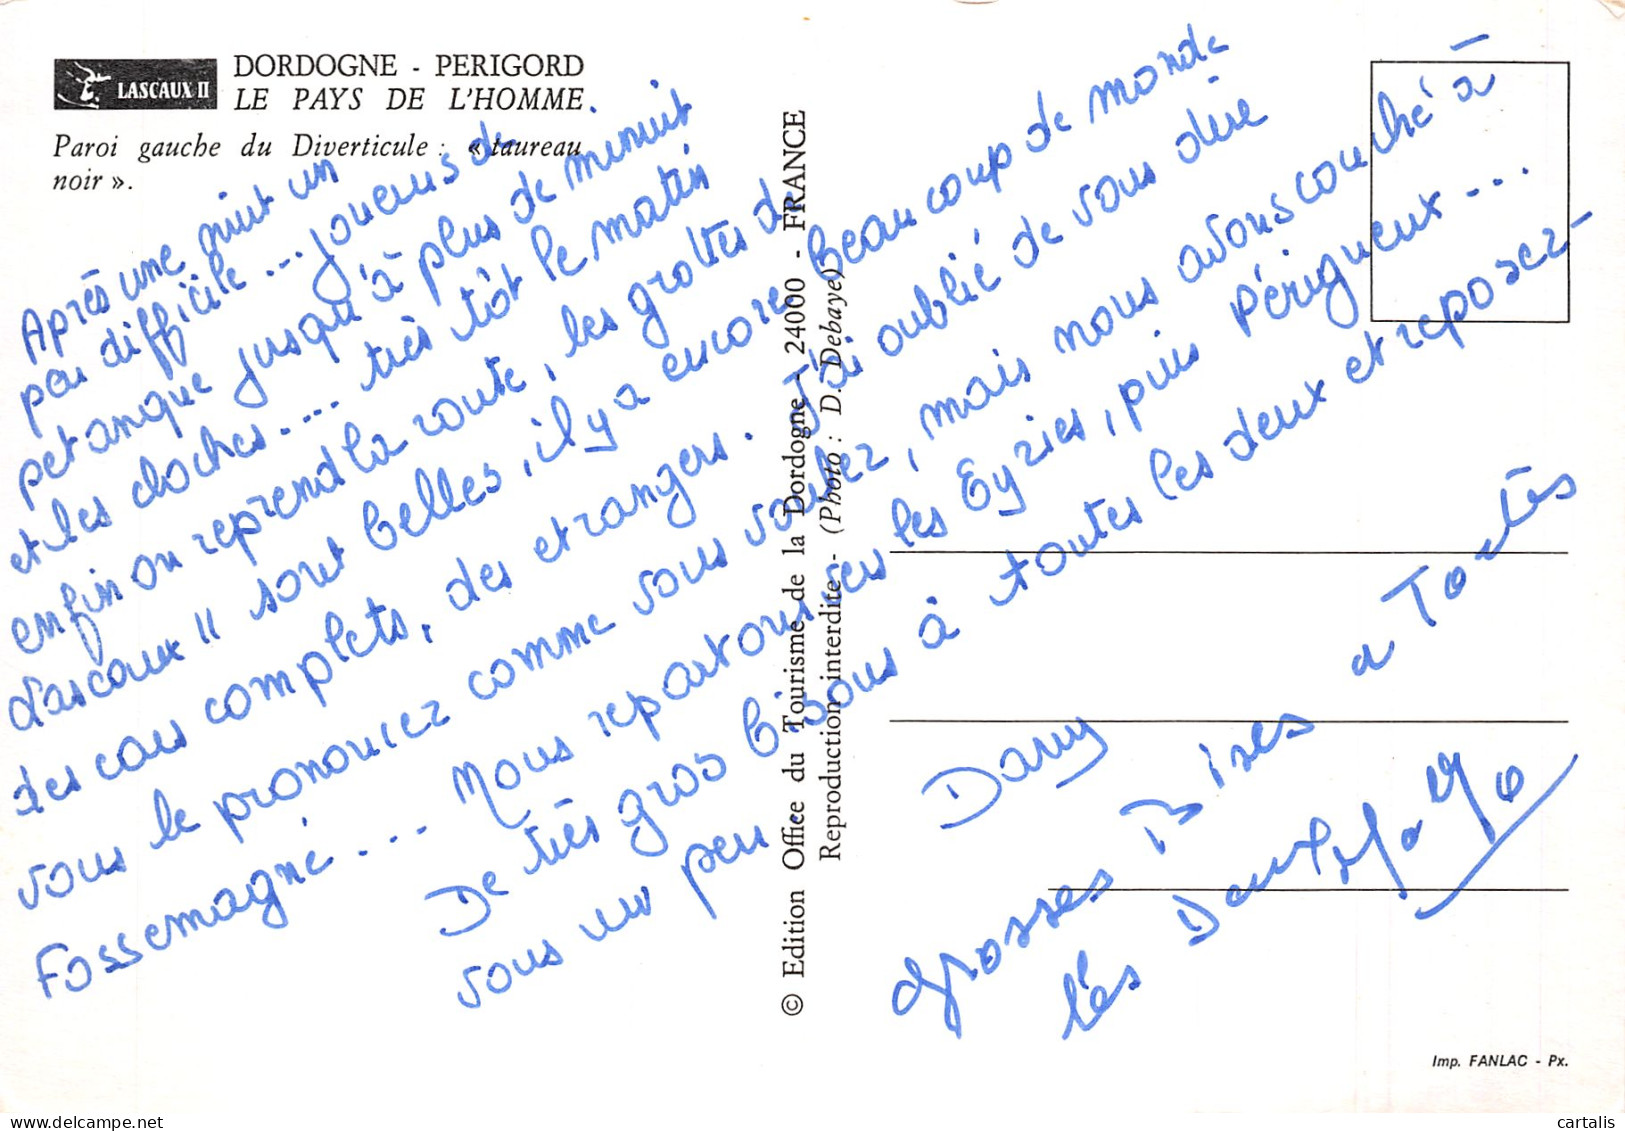 LASCAUX II
DORDOGNE - PERIGORD
LE PAYS DE L'HOMME.
Paroi gauche du Diverticule : « taureau
noir ».
Après une nuit un
peu difficile... joueurs de
petanque jusqu'à plus de minuit
et les cloches... très tôt le matin
enfin on reprend la route, les grottes de
Lascaux II sont belles, il y a encore beaucoup de monde
des cars complets, des etrangers. J'ai oublié de vous dire
vous le prononcez comme vous voulez, mais nous avons couché à
Fossemagne... Nous repartons vers les Eyzies, puis Périgueux...
De très gros bisous à toutes les deux et reposez-
vous un peu.
Dany
Grosses Bises a Toutes
Les
© Edition Office du Tourisme de la Dordogne - 24000 - FRANCE
Reproduction interdite - (Photo : D. Debaye)
Imp. FANLAC - Px.
cartalis